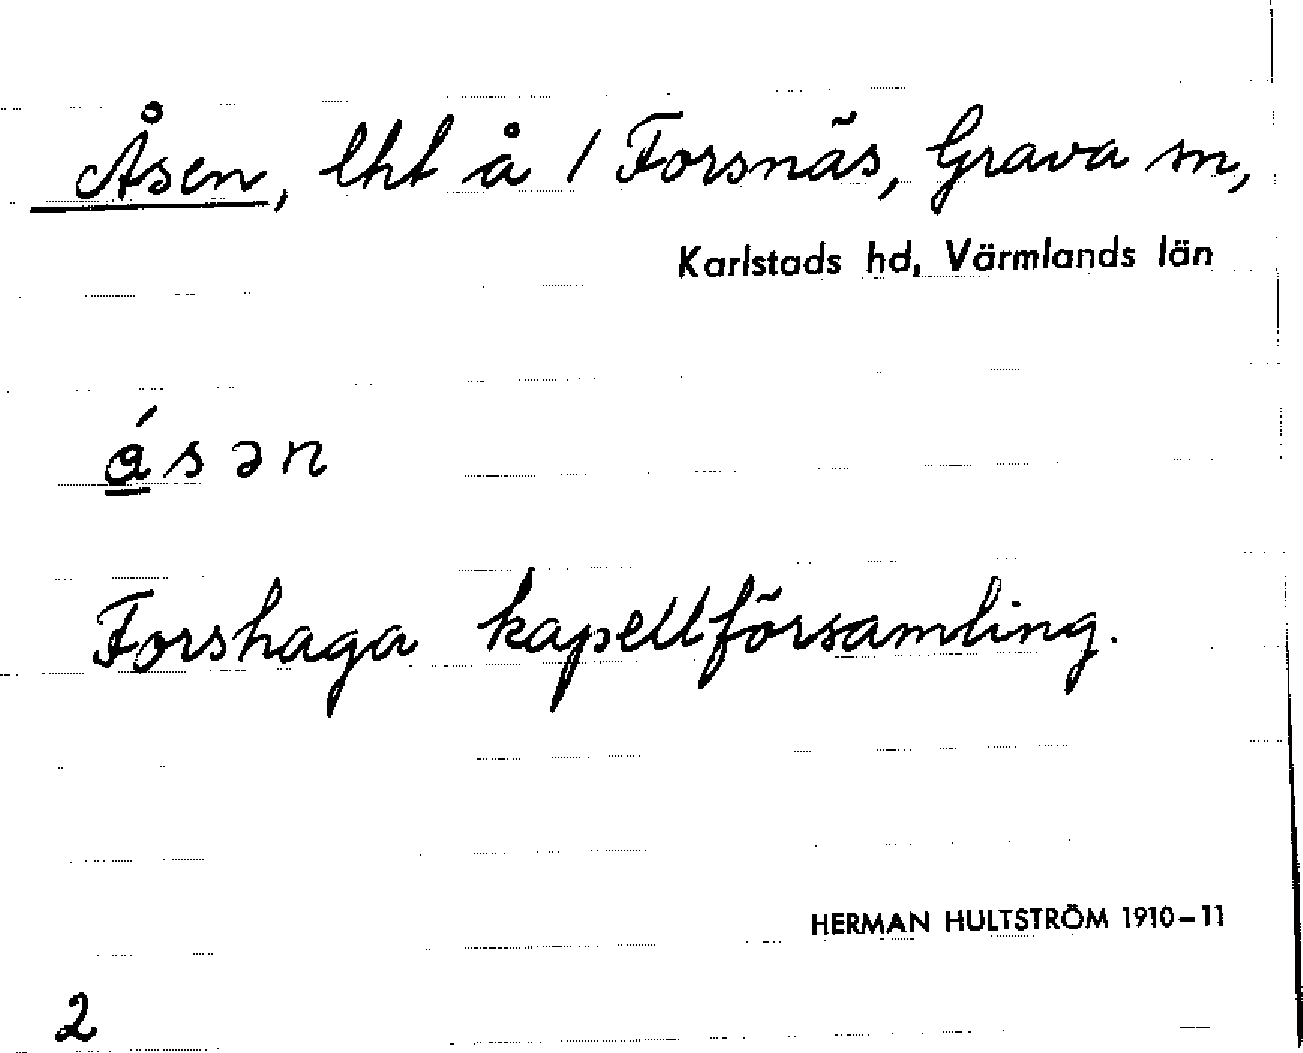 Åsen, lht å 1 Forsnäs, Grava sn,
Karlstads hd, Värmlands län
ǻsən
Forshaga kapellförsamling.
HERMAN HULTSTRÖM 1910-11
2